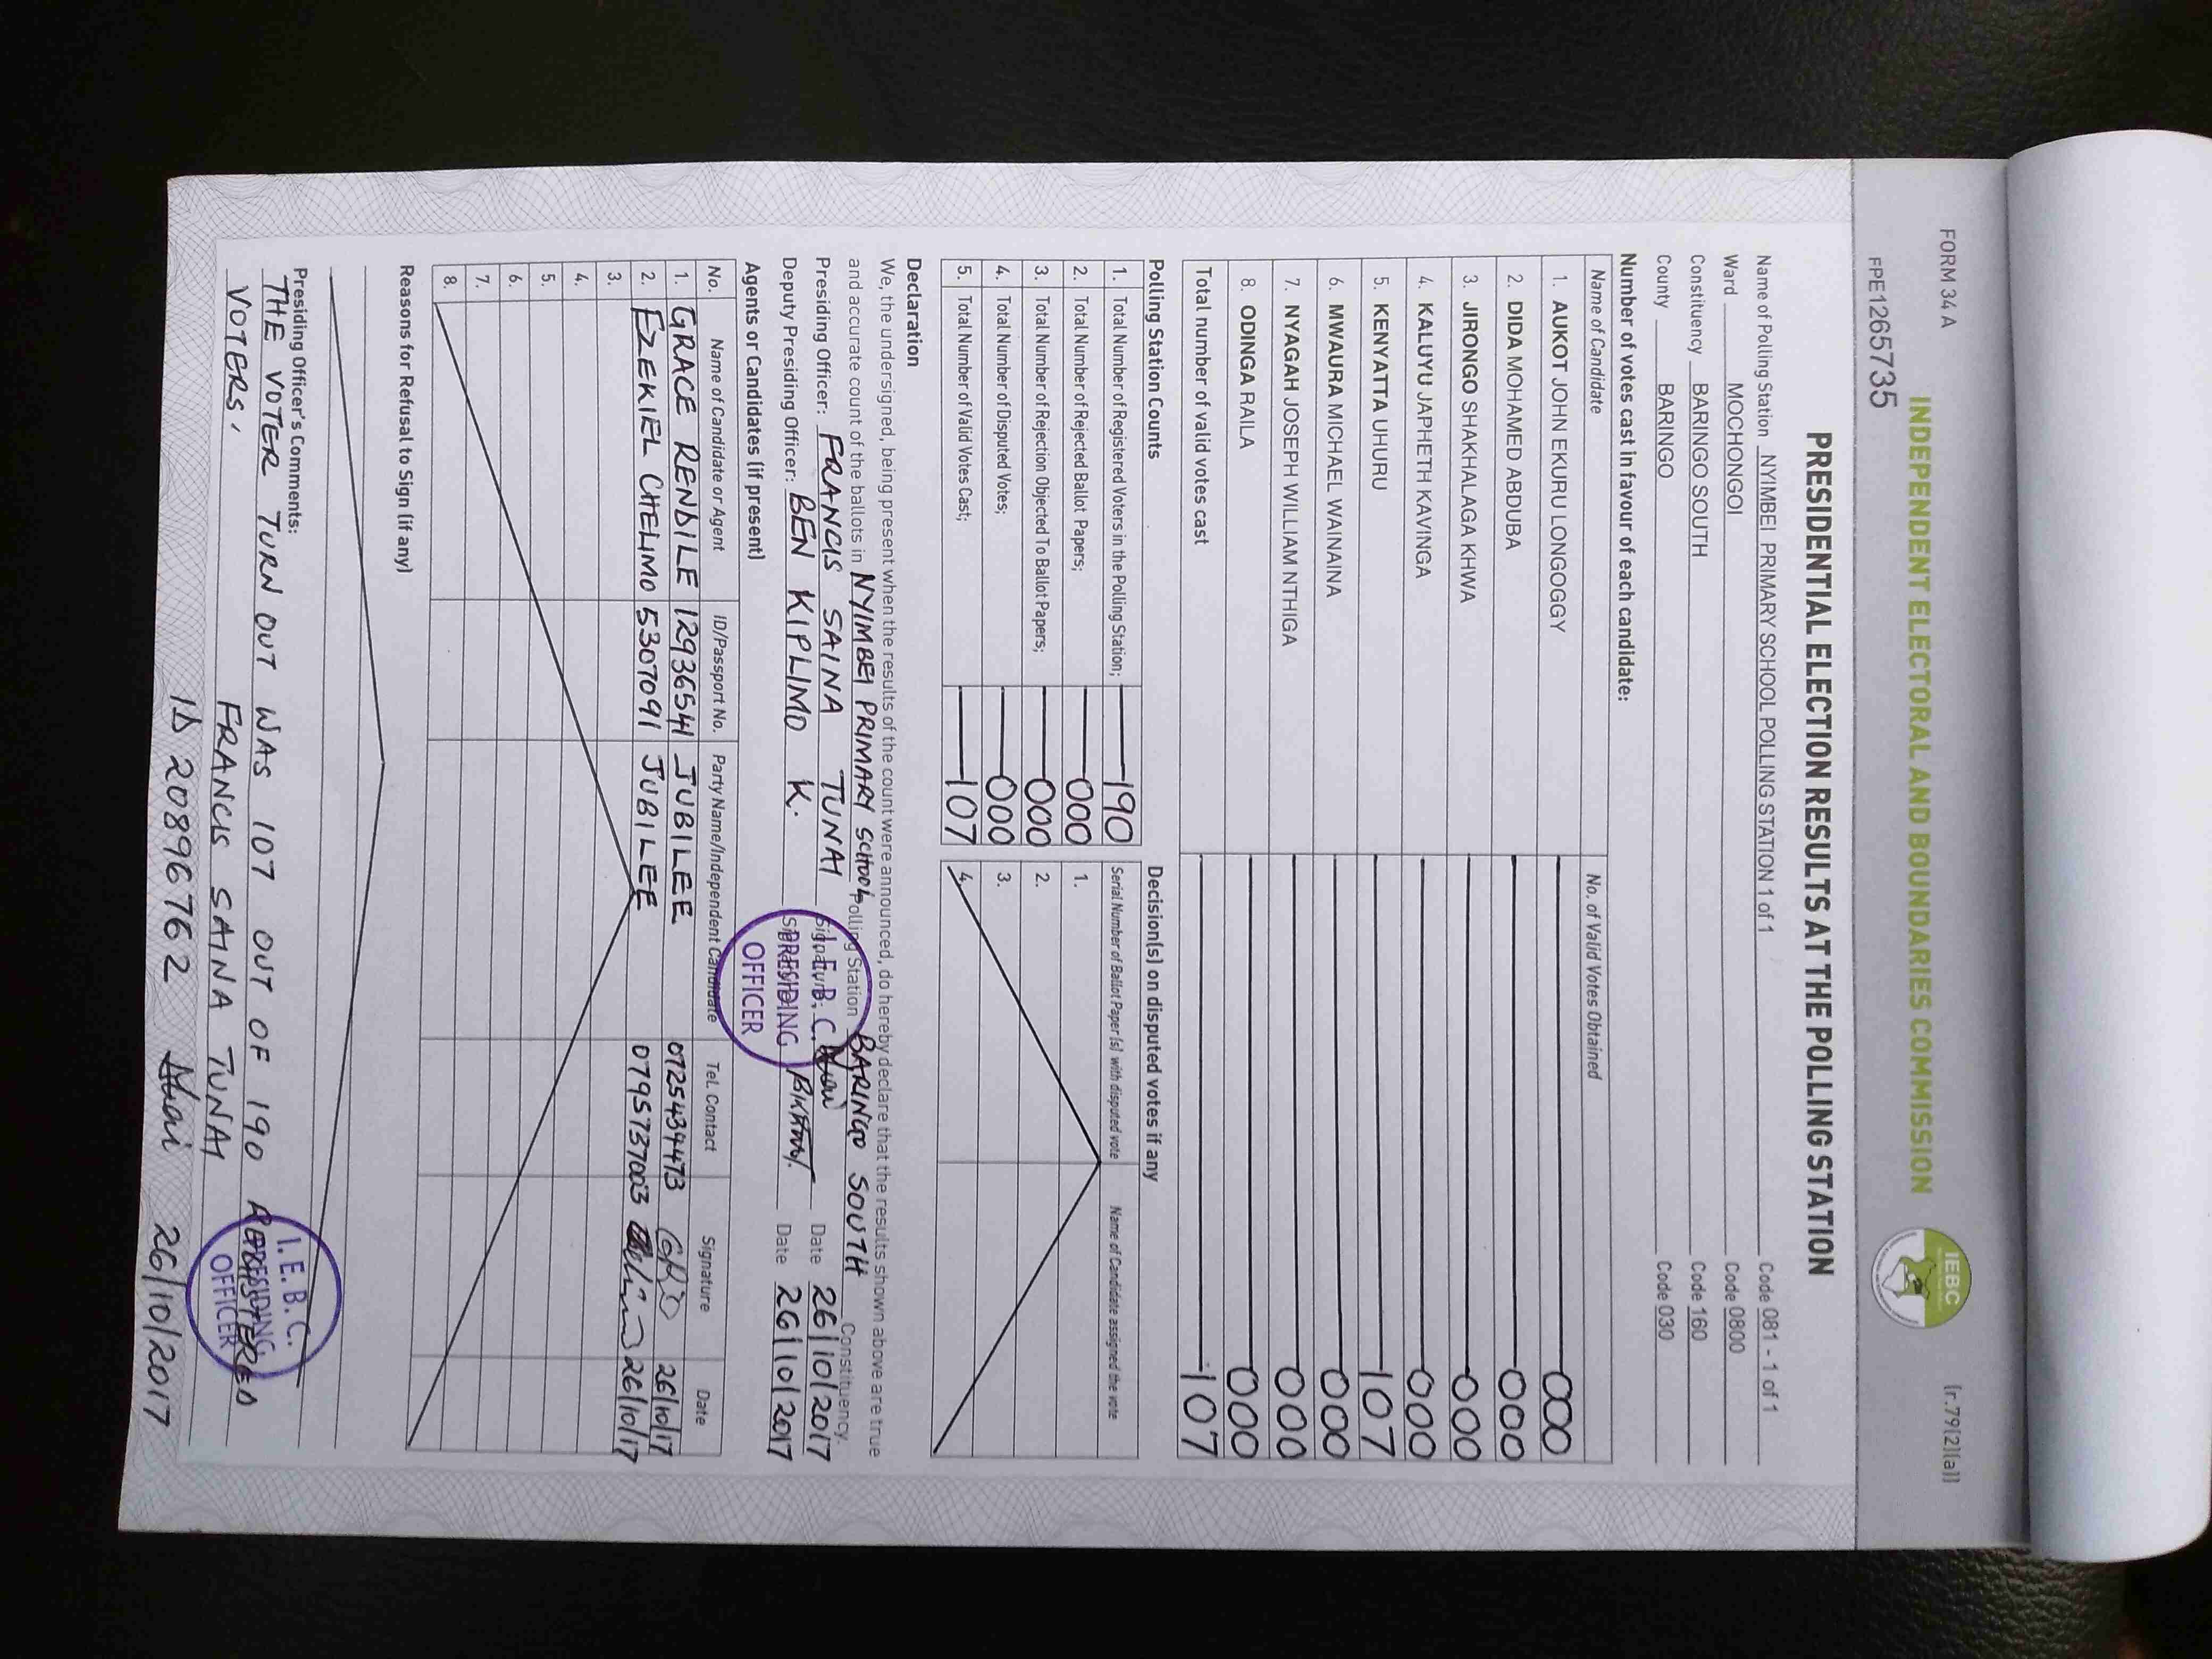 FORM 34 A
(r.79(2)(a))
INDEPENDENT ELECTORAL AND BOUNDARIES COMMISSION
IEBC
FPE1265735
PRESIDENTIAL ELECTION RESULTS AT THE POLLING STATION
Name of Polling Station NYIMBEI PRIMARY SCHOOL POLLING STATION 1 of 1 Code 081 - 1 of 1
Ward MOCHONGOI Code 0800
Constituency BARINGO SOUTH Code 160
County BARINGO Code 030
Number of votes cast in favour of each candidate:
Name of Candidate No. of Valid Votes Obtained
1. AUKOT JOHN EKURU LONGOGGY 000
2. DIDA MOHAMED ABDUBA 000
3. JIRONGO SHAKHALAGA KHWA 000
4. KALUYU JAPHETH KAVINGA 000
5. KENYATTA UHURU 107
6. MWAURA MICHAEL WAINAINA 000
7. NYAGAH JOSEPH WILLIAM NTHIGA 000
8. ODINGA RAILA 000
Total number of valid votes cast 107
Polling Station Counts
1. Total Number of Registered Voters in the Polling Station; 190
2. Total Number of Rejected Ballot Papers; 000
3. Total Number of Rejection Objected To Ballot Papers; 000
4. Total Number of Disputed Votes; 000
5. Total Number of Valid Votes Cast; 107
Decision(s) on disputed votes if any
Serial Number of Ballot Paper (s) with disputed vote Name of Candidate assigned the vote
1.
2.
3.
4.
Declaration
We, the undersigned, being present when the results of the count were announced, do hereby declare that the results shown above are true
and accurate count of the ballots in NYIMBEI PRIMARY SCHOOL Polling Station BARINGO SOUTH Constituency.
Presiding Officer: FRANCIS SAINA TUNAI Signature Date 26/10/2017
Deputy Presiding Officer: BEN KIPLIMO K. Signature Date 26/10/2017
I.E.B.C.
PRESIDING
OFFICER
Agents or Candidates (if present)
No. Name of Candidate or Agent ID/Passport No. Party Name/Independent Candidate Tel. Contact Signature Date
1. GRACE RENDILE 12936541 JUBILEE 0725434473 26/10/17
2. EZEKIEL CHELIMO 5307091 JUBILEE 0795737003 26/10/17
3.
4.
5.
6.
7.
8.
Reasons for Refusal to Sign (if any)
Presiding Officer's Comments:
THE VOTER TURN OUT WAS 107 OUT OF 190 REGISTERED
VOTERS. FRANCIS SAINA TUNAI
ID 20896762 26/10/2017
I.E.B.C.
PRESIDING
OFFICER